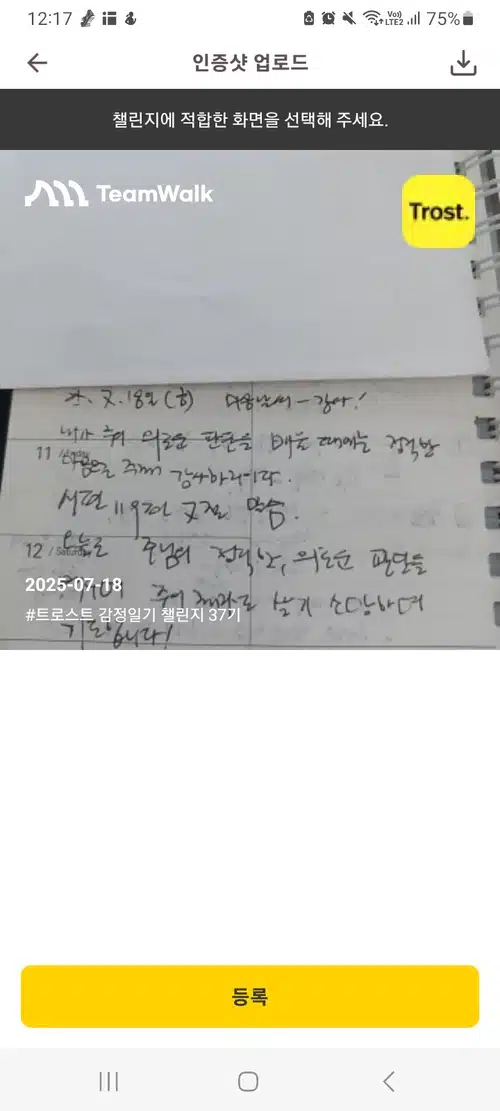 12:17 75%
인증샷 업로드
챌린지에 적합한 화면을 선택해 주세요.
TeamWalk
Trost.
7.18일
내가 주의 의로운 판단을 배울 때에는 정직한
11
감사하리이다.
시편 119편 7절 말씀.
12 / Saturday
오늘도 주님의 정직한, 의로운 판단을
2025-07-18
살기 소망하며
#트로스트 감정일기 챌린지 37기
기도합니다!
등록